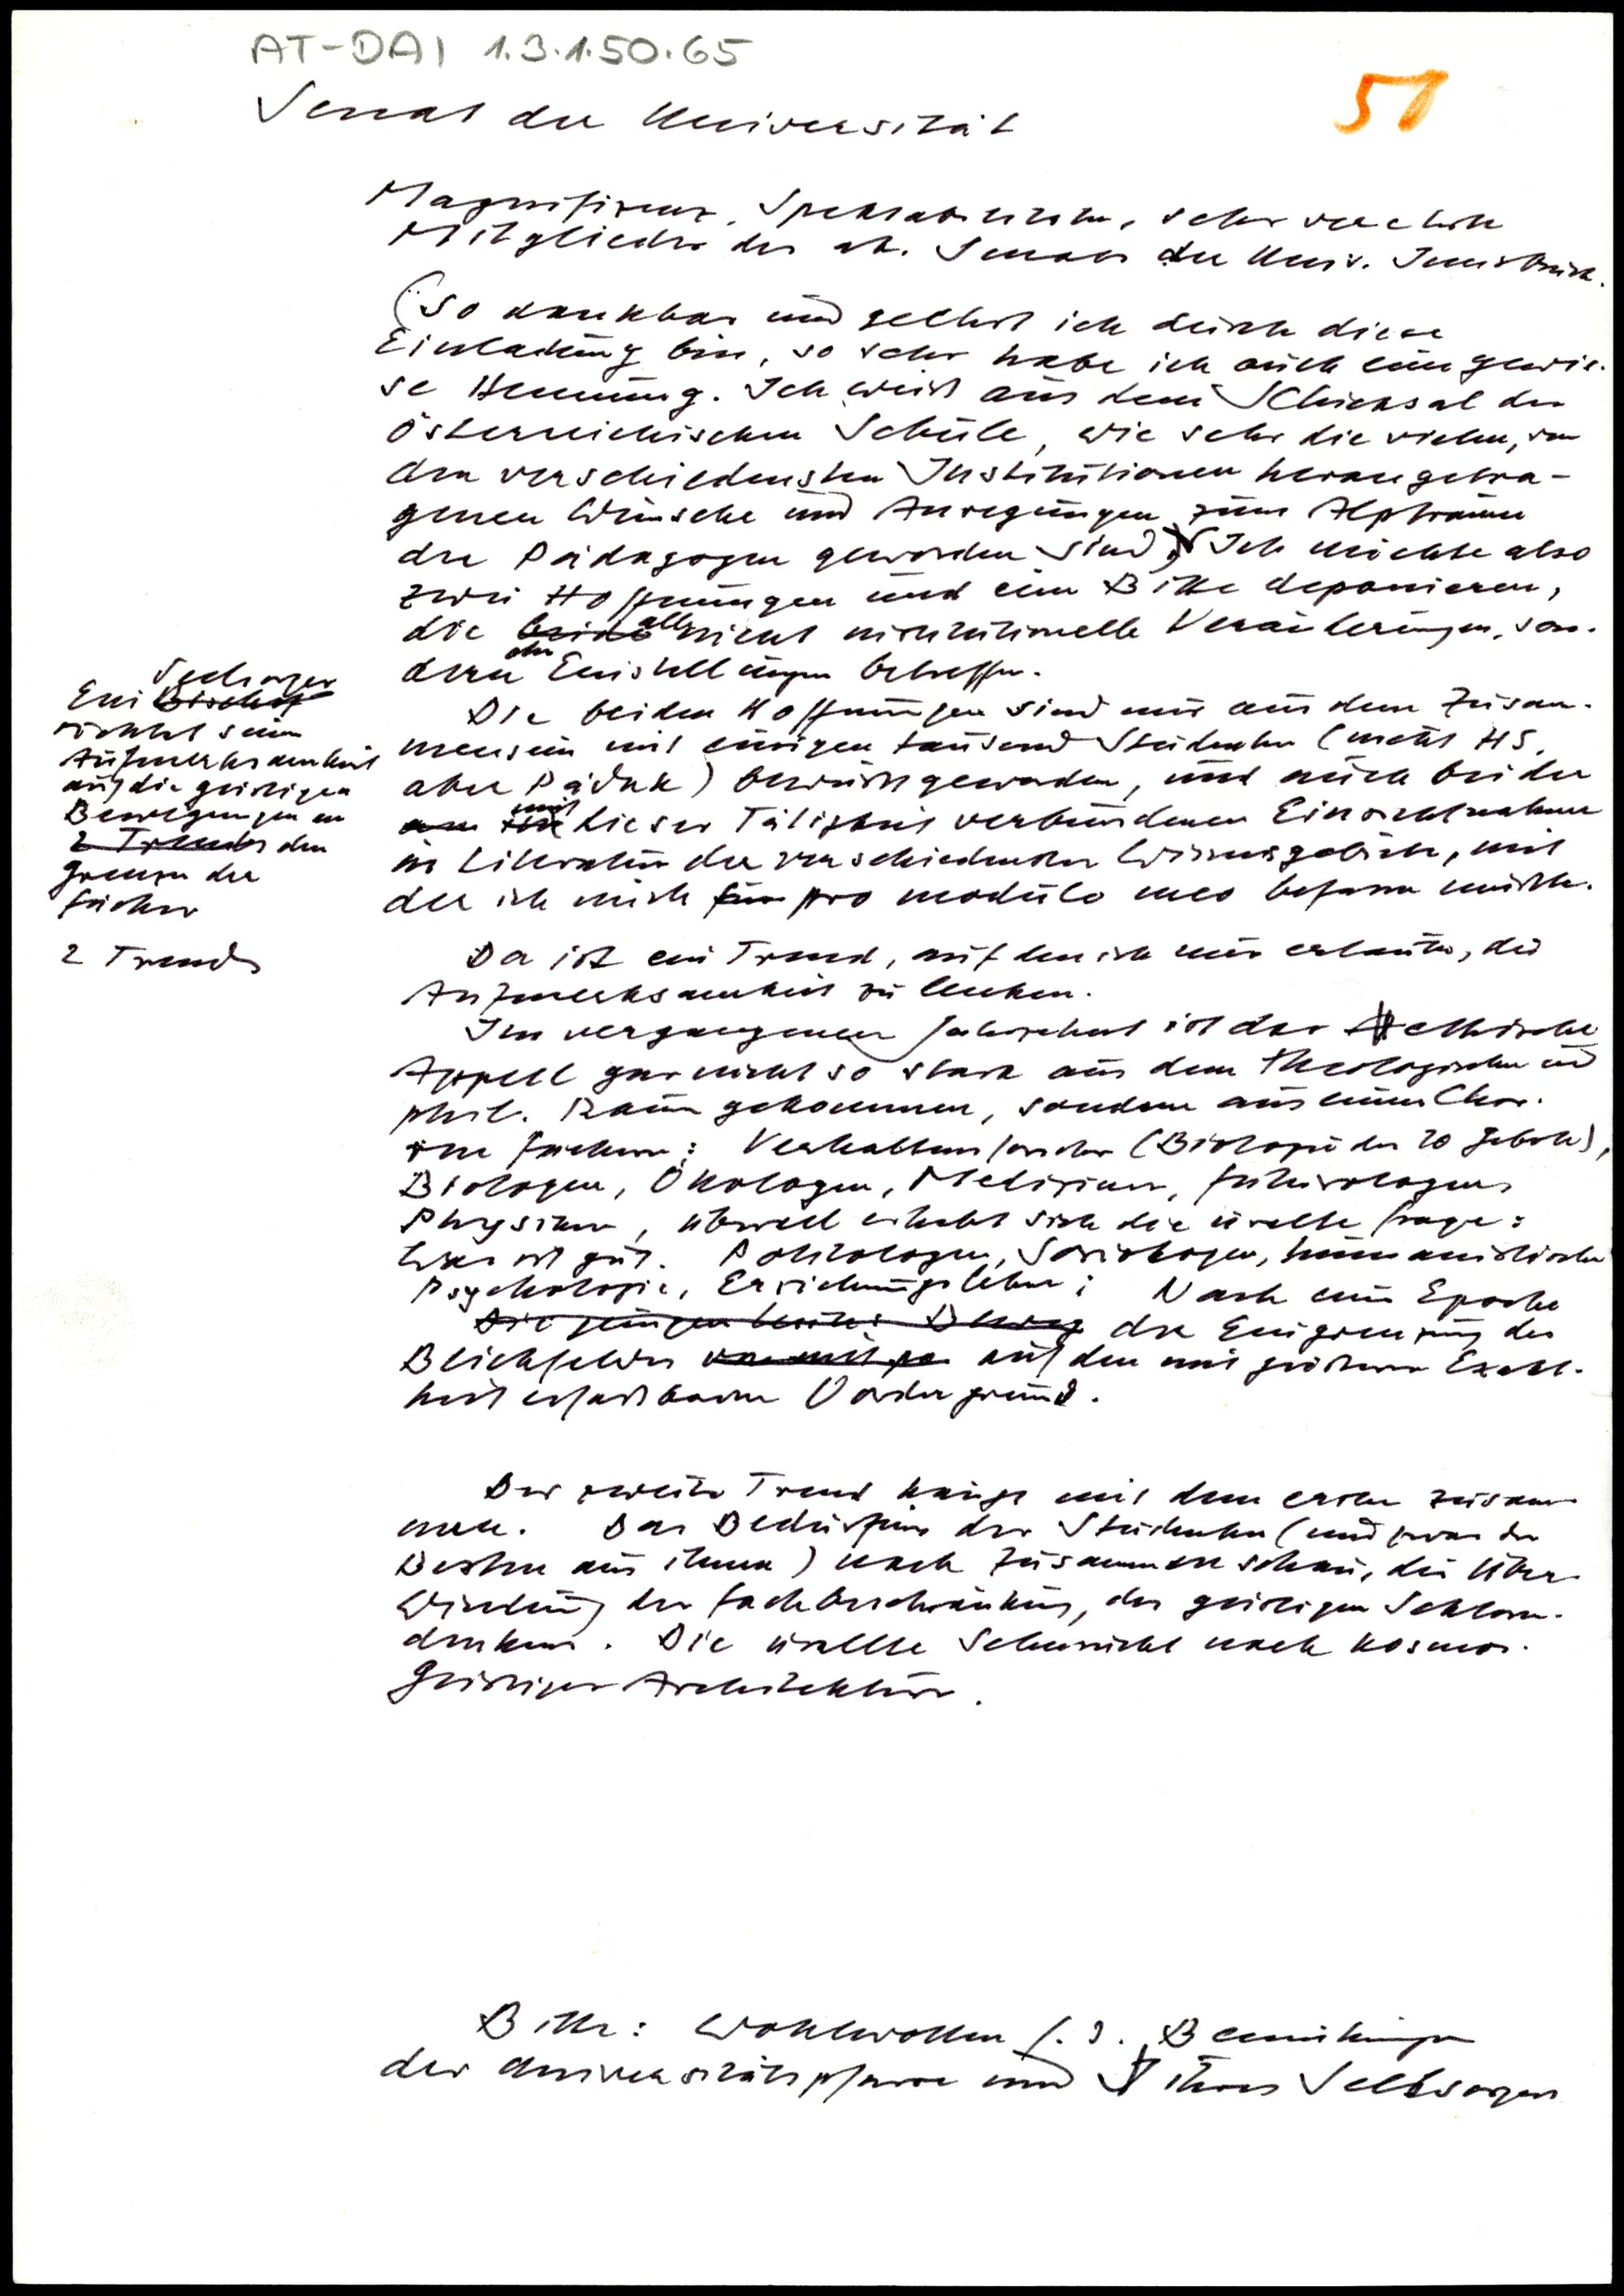 AT-DAI 1.3.1.50.65
51
Senat der Universität
Magnifizenz, Spektabilitäten, sehr verehrte
Mitglieder des ak. Senats der Univ. Innsbruck.
(So dankbar und geehrt ich durch diese
Einladung bin, so sehr habe ich auch eine gewis-
se Hemmung. Ich weiß aus dem Schicksal der
österreichischen Schule, wie sehr die vielen, von
den verschiedensten Institutionen herangetra-
genen Wünsche und Anregungen zum Alptraum
der Pädagogen geworden sind.) Ich möchte also
zwei Hoffnungen und eine Bitte deponieren,
die beide alle nicht institutionelle Veränderungen, son-
dern Einstellungen betreffen.
Die beiden Hoffnungen sind mir aus dem Zusam-
mensein mit einigen tausend Studenten (nicht HS,
aber PädAk) bewußt geworden, und auch bei der
mit dieser Tätigkeit verbundenen Einsichtnahme
in Literatur der verschiedensten Wissensgebiete, mit
der ich mich pro modulo meo befassen mußte.
Seelsorger
Ein Bischof
richtet seine
Aufmerksamkeit
auf die geistigen
Bewegungen an
2 Trends den
Grenzen der
Fächer
2 Trends
Da ist ein Trend, auf den ich mir erlaube, die
Aufmerksamkeit zu lenken.
Im vergangenen Jahrzehnt ist der ethische
Appell gar nicht so stark aus dem theologischen und
phil. Raum gekommen, sondern aus einem Chor
Fächern: Verhaltensforscher (Biologie der 10 Gebote),
Biologen, Ökologen, Mediziner, Futurologen
Physiker, überall erhebt sich die uralte Frage:
Was ist gut. Politologen, Soziologen, humanistische
Psychologie, Erziehungslehre; Nach einer Epoche
der Eingrenzung des
Blickfeldes auf den mit größerer Exakt-
heit erfaßbaren Vordergrund.
Der zweite Trend hängt mit dem ersten zusam-
men. Das Bedürfnis der Studenten (und zwar der
Besten aus ihnen) nach Zusammenschau, die Über-
windung der Fachbeschränkung, des geistigen
denkens. Die uralte Sehnsucht nach Kosmos.
Geistiger Architektur.
Bitte: Wohlwollen f. d. Bemühungen
der Universitätspfarre und ihres Seelsorgers